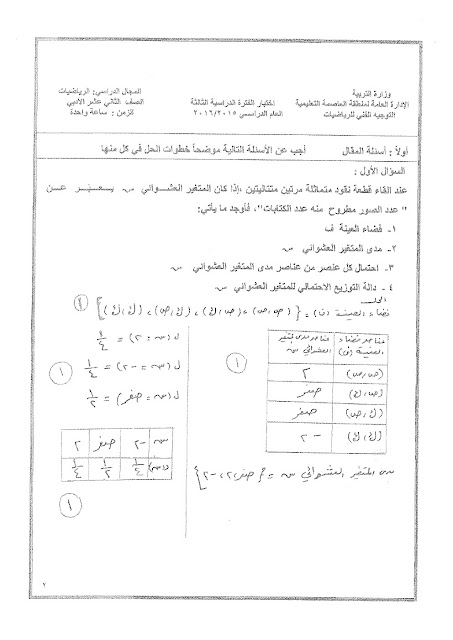 وزارة التربية
الإدارة العامة لمنطقة العاصمة التعليمية
التوجيه الفني للرياضيات
اختبار الفترة الدراسية الثالثة
العام الدراسي ٢٠١٦/٢٠١٥
المجال الدراسي: الرياضيات
الصف الثاني عشر الأدبي
الزمن : ساعة واحدة
أولاً : أسئلة المقال أجب عن الأسئلة التالية موضحاً خطوات الحل في كل منها
السؤال الأول :
عند القاء قطعة نقود متماثلة مرتين متتاليتين ،إذا كان المتغير العشوائي س يعبر عن
" عدد الصور مطروح منه عدد الكتابات"، فأوجد ما يأتي:
١- فضاء العينة ف
٢- مدى المتغير العشوائي س
٣- احتمال كل عنصر من عناصر مدى المتغير العشوائي س
٤- دالة التوزيع الاحتمالي للمتغير العشوائي س
الحل
فضاء العينة (ف) = { (ص،ص) ، (ص،ك) ، (ك،ص) ، (ك،ك) }
عناصر فضاء العينة (ف) عناصر مدى المتغير العشوائي س
(ص،ص) ٢
(ص،ك) صفر
(ك،ص) صفر
(ك،ك) -٢
١
مدى المتغير العشوائي س = { صفر، ٢، -٢ }
ل(س = ٢) = ١/٤
ل(س = -٢) = ١/٤
ل(س = صفر) = ١/٢
١
س -٢ صفر ٢
د(س) ١/٤ ١/٢ ١/٤
١
٢